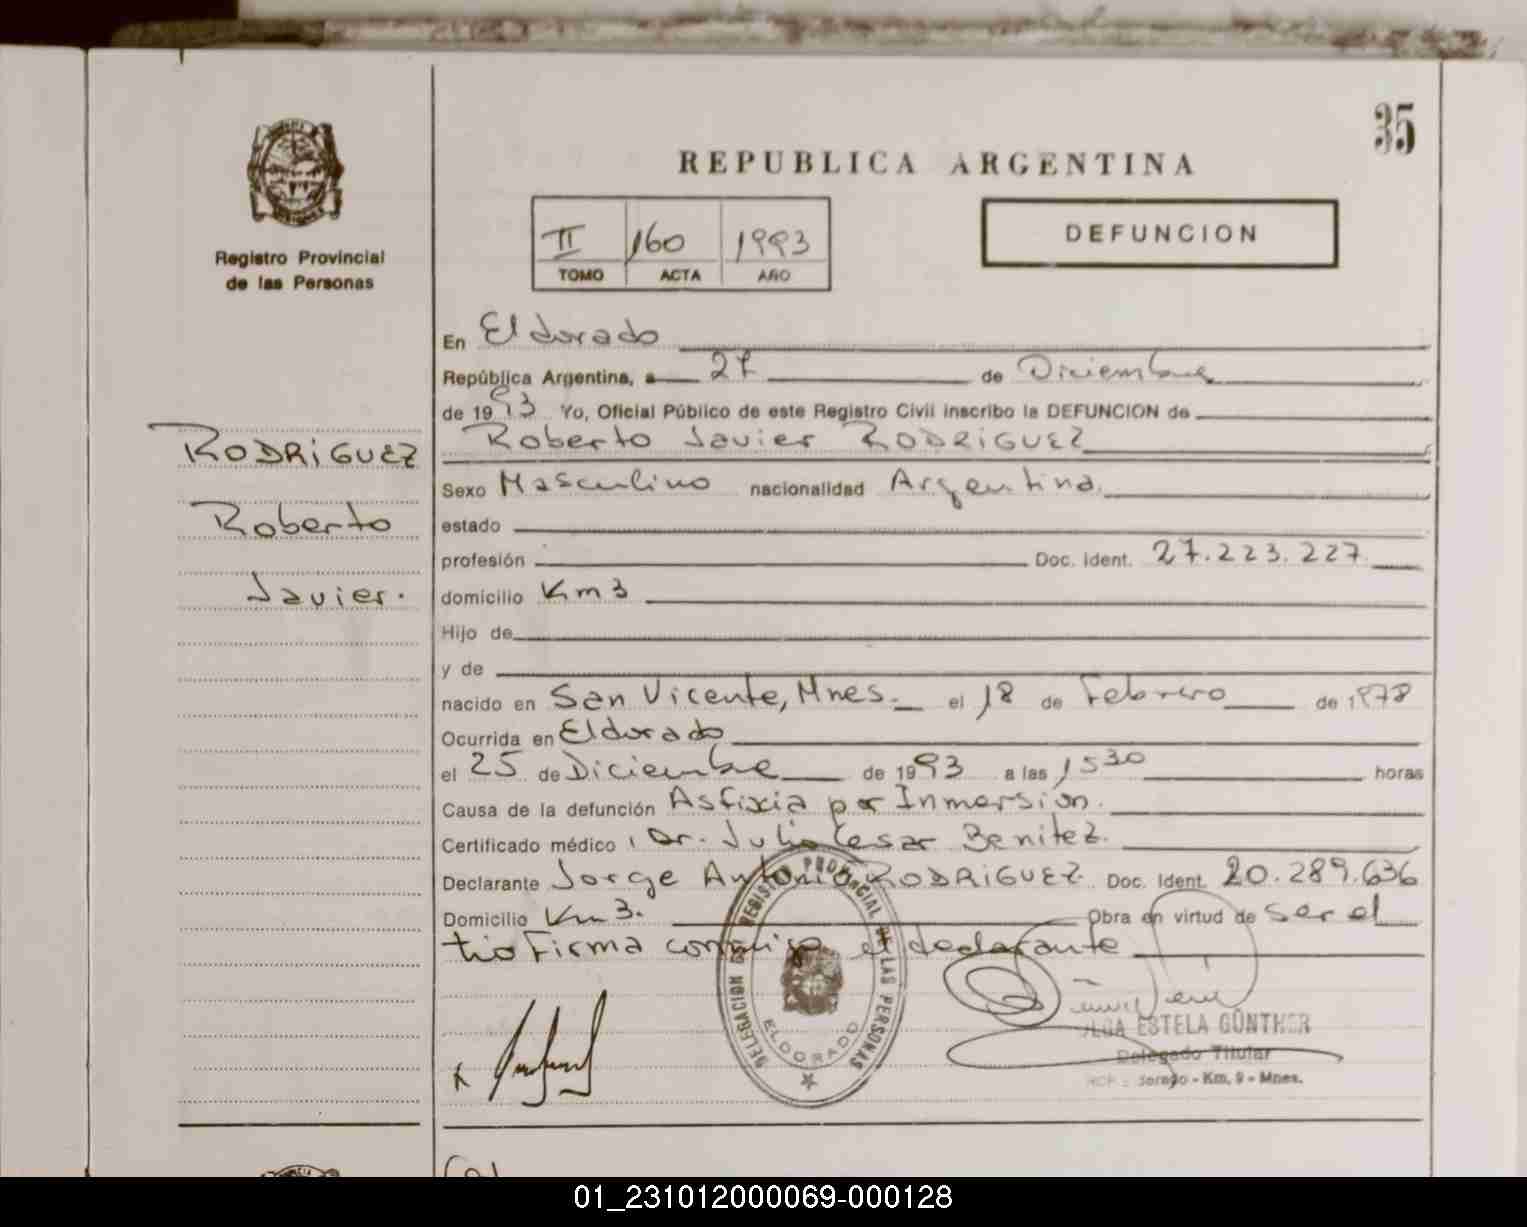 35
REPUBLICA ARGENTINA
Registro Provincial
de las Personas
II 160 1993
TOMO ACTA AÑO
DEFUNCION
En Eldorado
República Argentina, a 27 de Diciembre
de 1993 Yo, Oficial Público de este Registro Civil inscribo la DEFUNCION de
RODRIGUEZ
Roberto
Javier.
Roberto Javier RODRIGUEZ
Sexo Masculino nacionalidad Argentina.
estado
profesión Doc. Ident. 27.223.227
domicilio Km 3
Hijo de
y de
nacido en San Vicente, Mnes. el 18 de Febrero de 1978
Ocurrida en Eldorado
el 25 de Diciembre de 1993 a las 1530 horas
Causa de la defunción Asfixia por Inmersión.
Certificado médico Dr. Julio Cesar Benitez.
Declarante Jorge Antonio RODRIGUEZ. Doc. Ident. 20.289.636
Domicilio Km 3. Obra en virtud de ser el
tio Firma conmigo el declarante
DELEGACION DEL REGISTRO PROVINCIAL DE LAS PERSONAS
ELDORADO
ESTELA GÜNTHER
Delegado Titular
Km. 9 - Mnes.
01_231012000069-000128